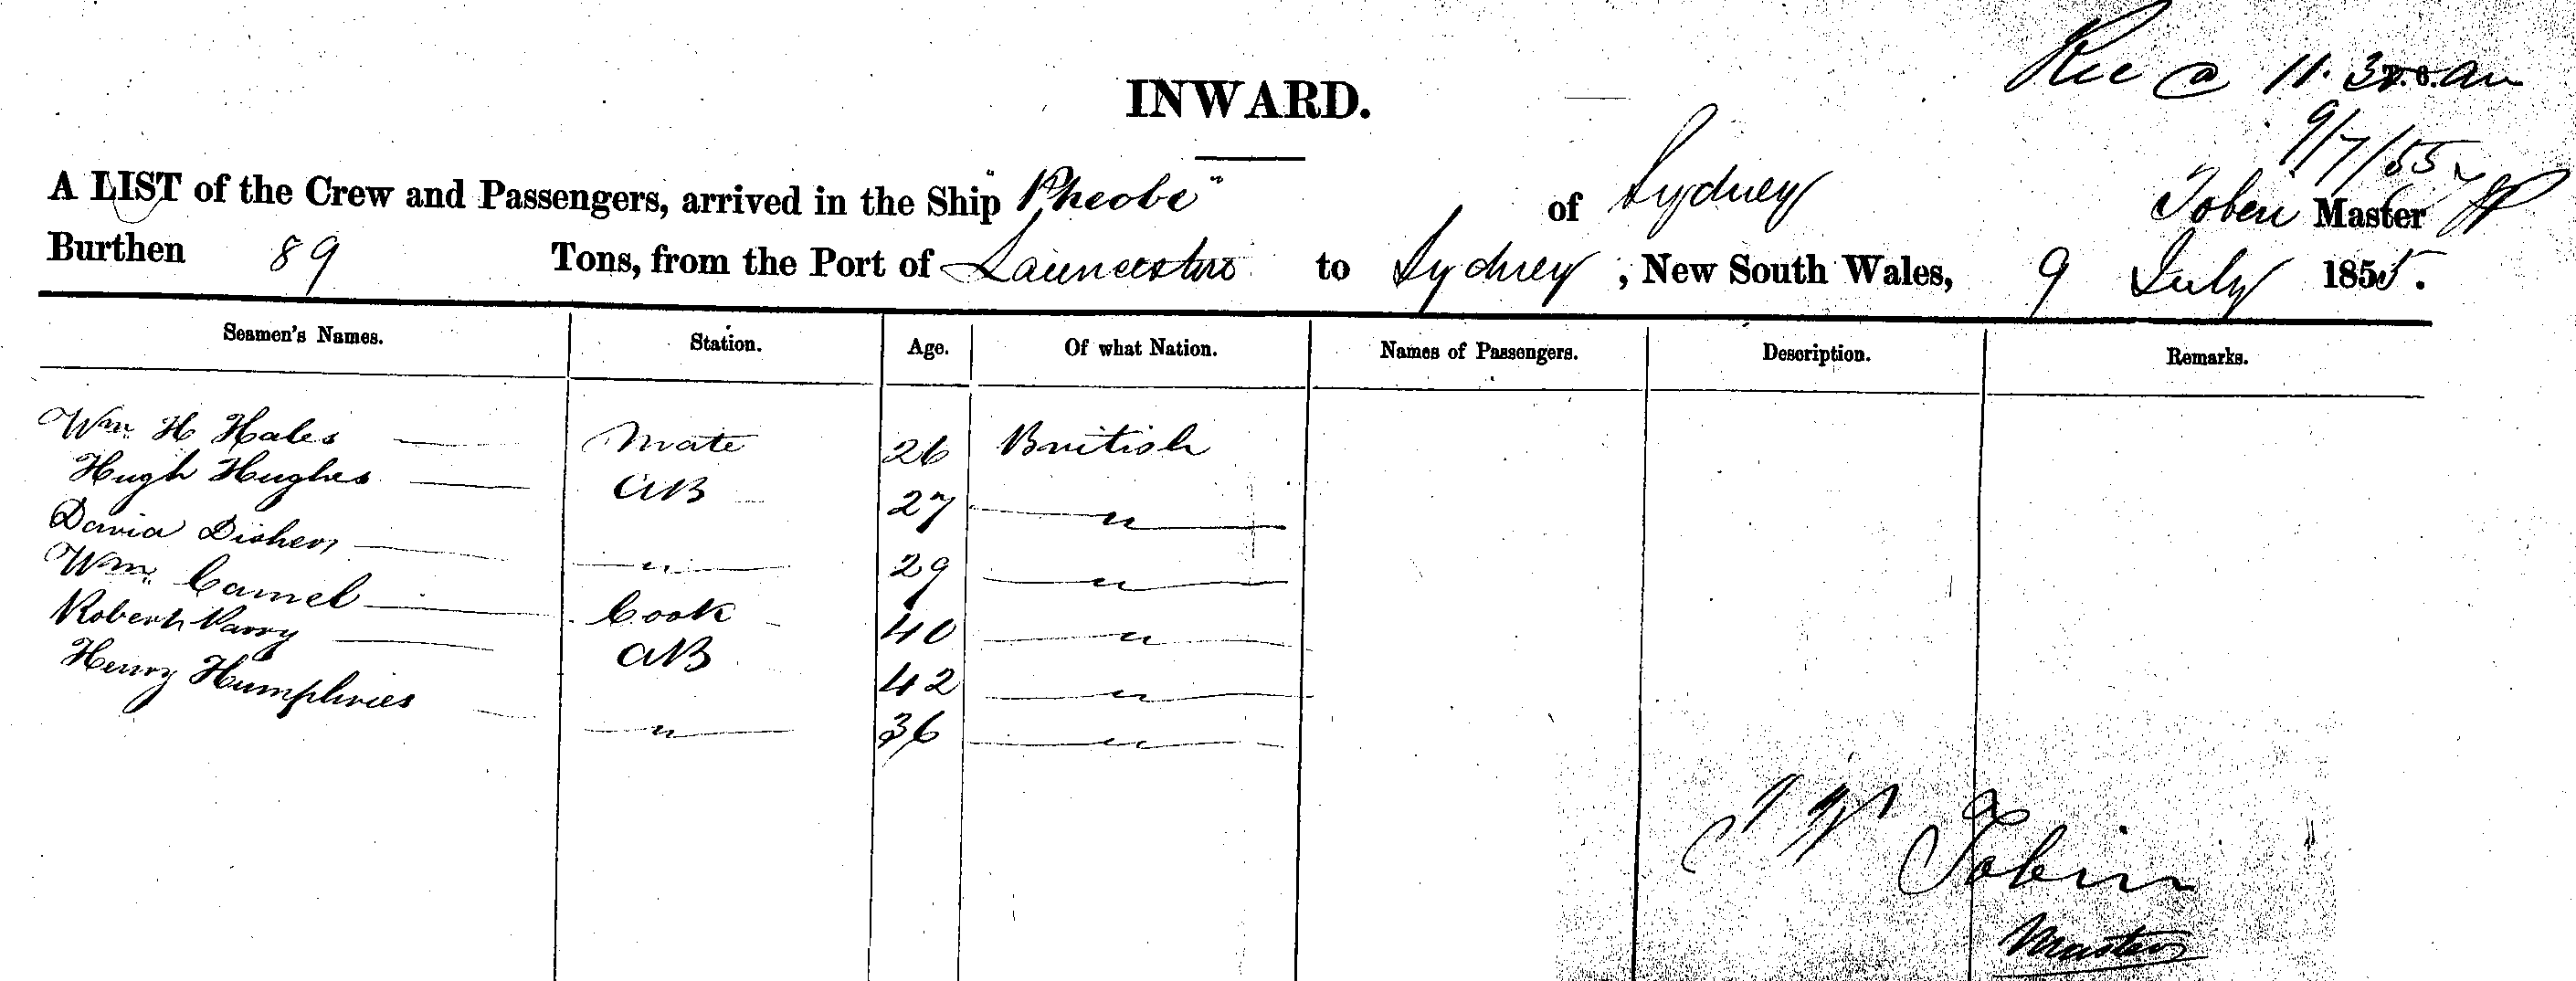 Rec @ 11.30 am
INWARD.
9/7/55
A LIST of the Crew and Passengers, arrived in the Ship "Pheobe" of Sydney Toben Master
Burthen 89 Tons, from the Port of Launceston to Sydney, New South Wales, 9 July 1855.
Seamen's Names. Station. Age. Of what Nation. Names of Passengers. Description. Remarks.
Wm. H Hales Mate 26 British
Hugh Hughes AB 27 "
David Disher " 29 "
Wm. Camel Cook 40 "
Robert Parry AB 42 "
Henry Humphries " 36 "
Tobin
Master